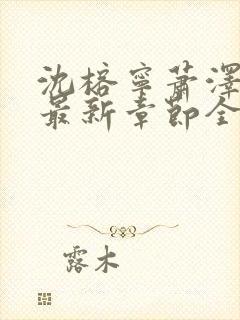 沈榕寧蕭澤
最新章節全
露木